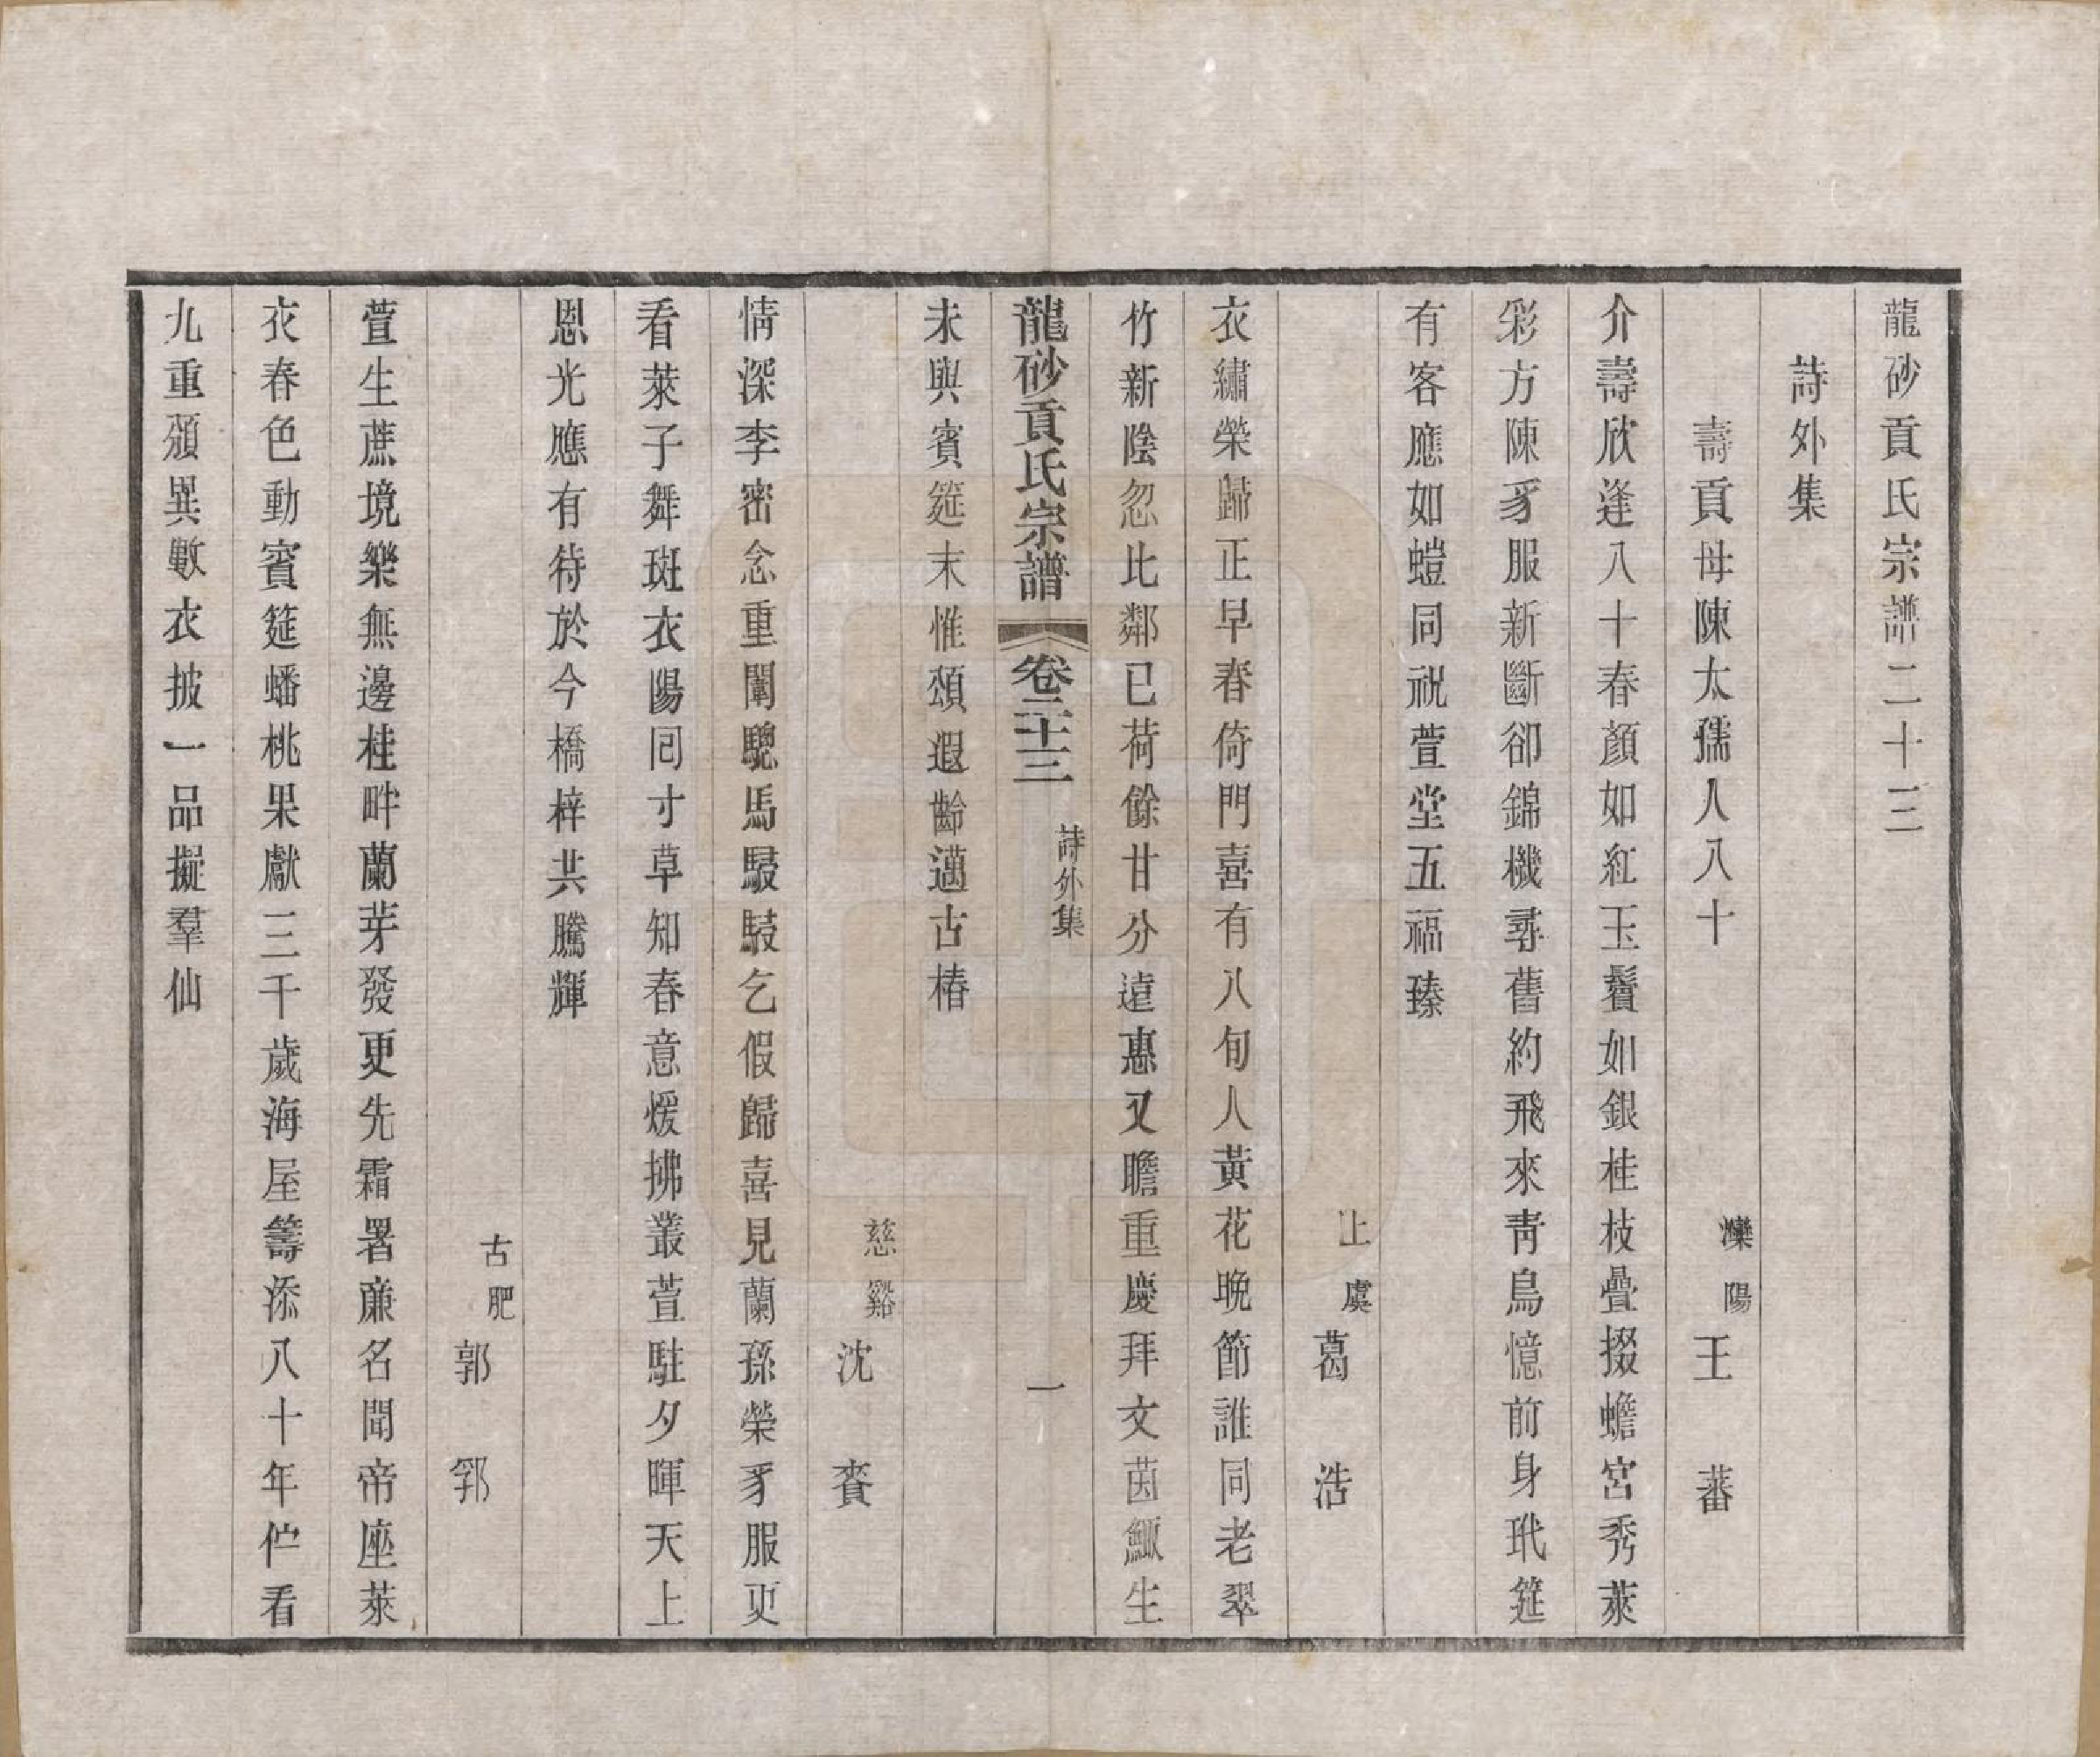 龍砂貢氏宗譜二十三
詩外集
壽貢母陳太孺人八十
灤陽王蕃
介壽欣逢八十春顏如紅玉鬢如銀桂枝疊掇蟾宮秀萊
彩方陳豸服新斷卻錦機尋舊約飛來靑鳥憶前身玳筵
有客應如螘同祝萱堂五福臻
上虞葛浩
衣繡榮歸正早春倚門喜有八旬人黃花晚節誰同老翠
竹新陰忽比鄰已荷餘甘分遠惠又瞻重慶拜文茵鯫生
未與賓筵末惟頌遐齡邁古椿
龍砂貢氏宗譜 卷二十三 詩外集 一
慈谿沈賚
情深李密念重闈驄馬駸駸乞假歸喜見蘭孫榮豸服更
看萊子舞斑衣陽囘寸草知春意煖拂叢萱駐夕暉天上
恩光應有待於今橋梓共騰輝
古肥郭郛
萱生蔗境樂無邊桂畔蘭芽發更先霜署廉名聞帝座萊
衣春色動賓筵蟠桃果獻三千歲海屋籌添八十年伫看
九重頒異數衣披一品擬羣仙